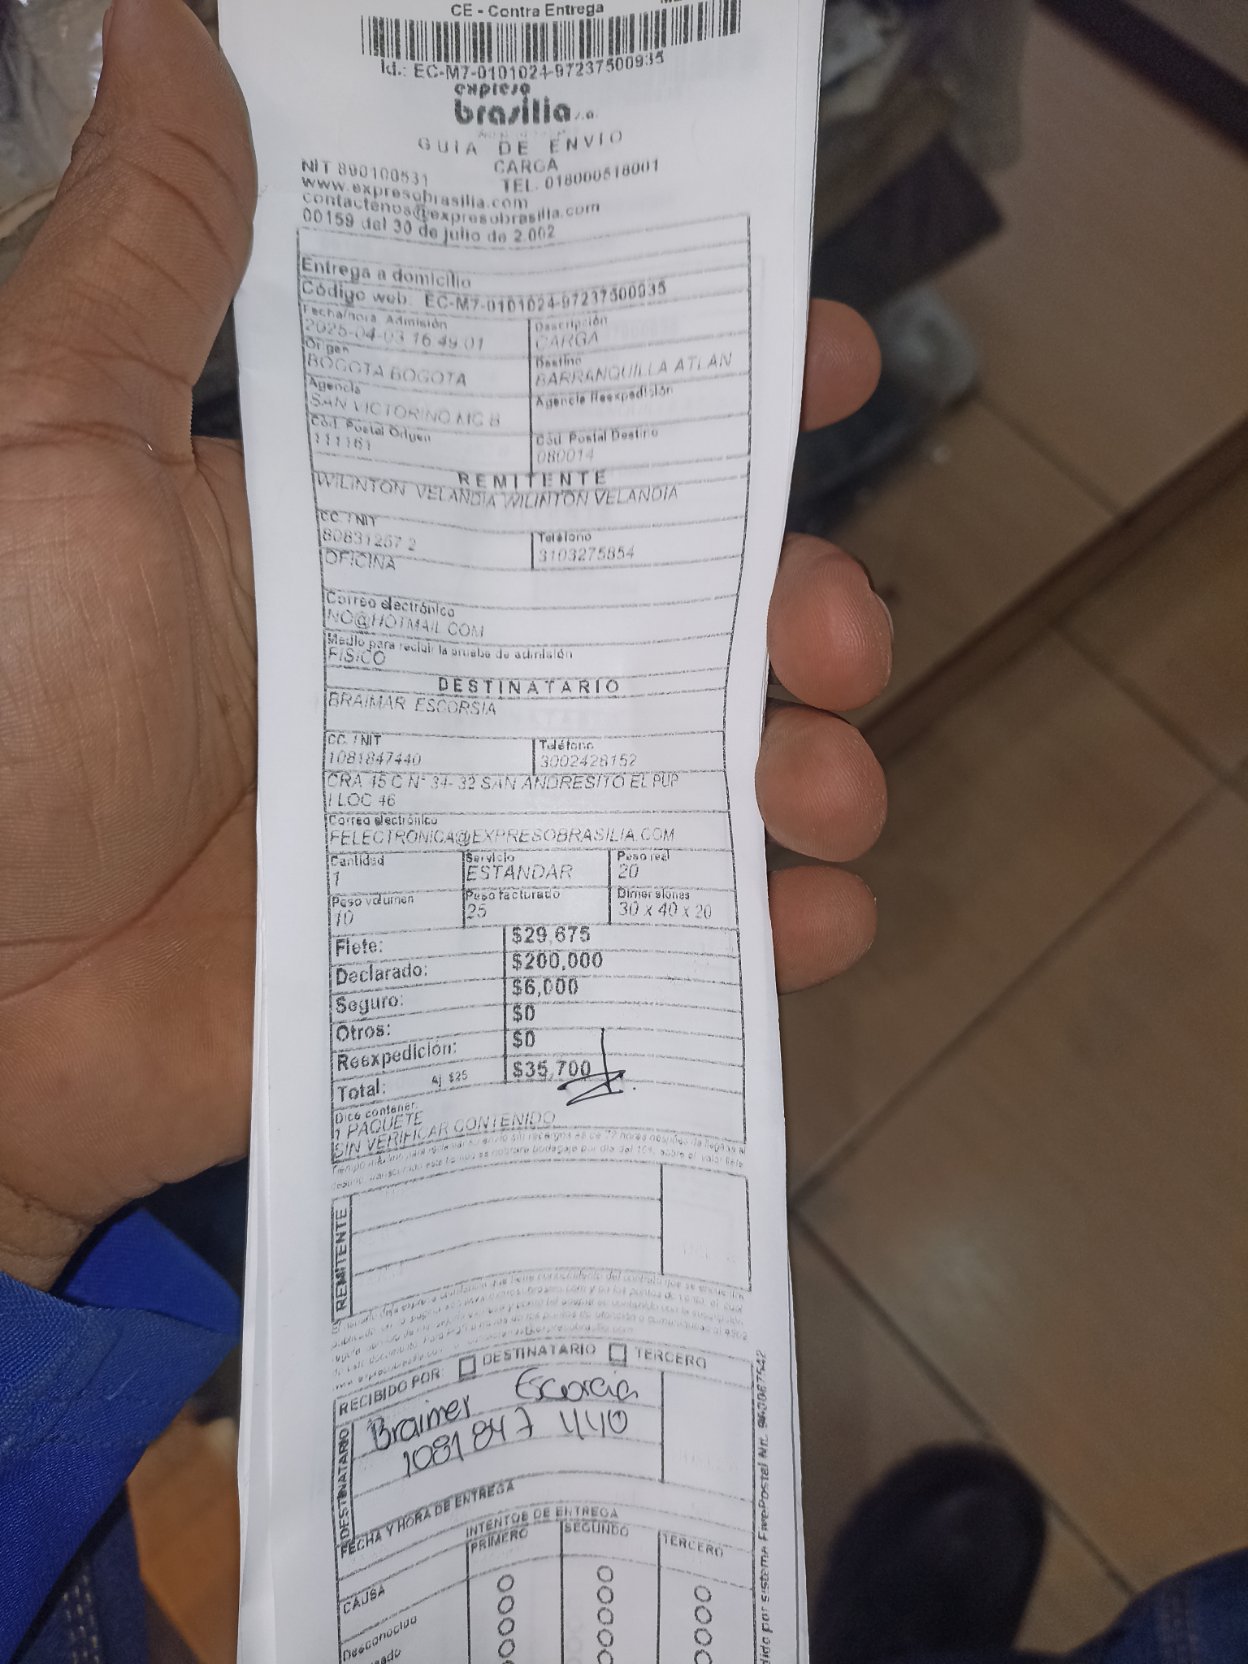 CE - Contra Entrega
Id.: EC-M7-0101024-97237500935
expreso
brasilia s.a.
GUIA DE ENVIO
CARGA
NIT 890100531 TEL. 018000518001
www.expresobrasilia.com
contactenos@expresobrasilia.com
00159 del 30 de julio de 2.002
Entrega a domicilio
Código web: EC-M7-0101024-97237500935
Fecha/hora. Admisión Descripción
2025-04-03 16:49:01 CARGA
Origen Destino
BOGOTA BOGOTA BARRANQUILLA ATLAN
Agencia Agencia Reexpedisión
SAN VICTORINO MC B
Cód. Postal Origen Cód. Postal Destino
111161 080014
REMITENTE
WILINTON VELANDIA WILINTON VELANDIA
CC. / NIT Teléfono
80831267 2 3103275854
OFICINA
Correo electrónico
NO@HOTMAIL.COM
Medio para recibir la prueba de admisión
FISICO
DESTINATARIO
BRAIMAR ESCORSIA
CC. / NIT Teléfono
1081847440 3002428152
CRA 45 C N° 34- 32 SAN ANDRESITO EL PUP
I LOC 46
Correo electrónico
FELECTRONICA@EXPRESOBRASILIA.COM
Cantidad Servicio Peso real
1 ESTANDAR 20
Peso volumen Peso facturado Dimensiones
10 25 30 x 40 x 20
Flete: $29,675
Declarado: $200,000
Seguro: $6,000
Otros: $0
Reexpedición: $0
Total: Aj $25 $35,700
Dice contener:
1 PAQUETE
SIN VERIFICAR CONTENIDO
REMITENTE
RECIBIDO POR: DESTINATARIO TERCERO
DESTINATARIO
Braimer Escorcia
1081 847 440
FECHA Y HORA DE ENTREGA
INTENTOS DE ENTREGA
PRIMERO SEGUNDO TERCERO
CAUSA
Desconocido